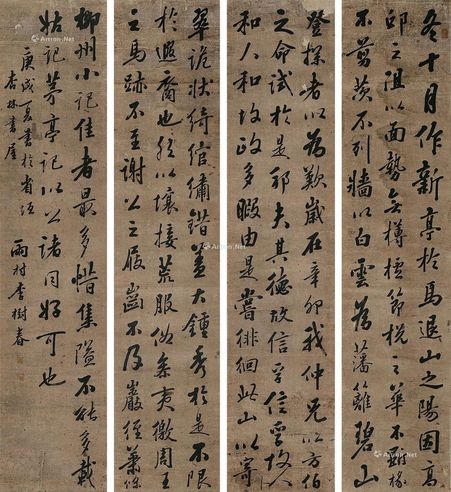 冬十月作新亭於馬退山之陽因高
邱之阻以面勢無樽櫨節棁之華不斵椽
不剪茨不列牆以白雲為藩籬碧山
登探者以為歎歲在辛卯我仲兄以方伯
之命試於是邦夫其德故信孚信孚故人
和人和故政多暇由是嘗徘徊此山以寄
翠詭狀綺綰繡錯蓋天鍾秀於是不限
於遐裔也然以壤接荒服俗參夷徼周王
之馬跡不至謝公之屐齒不及巖徑蕭條
柳州小記佳者最多惜集隘不能多載
姑記茅亭記以公諸同好可也
庚戌夏書於省垣
杏林書屋
雨村李樹春